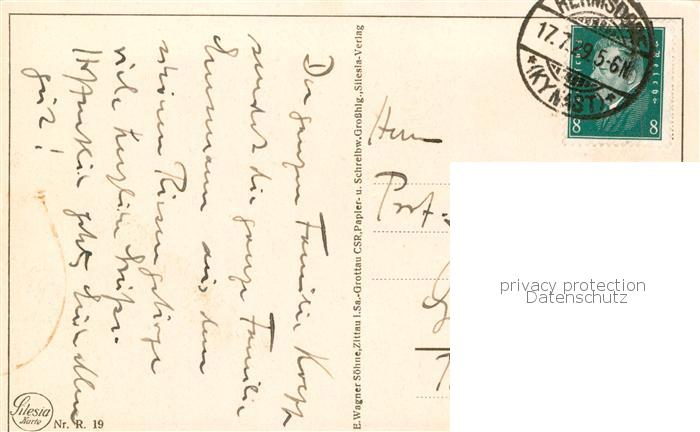 Der ganzen Familie
sendet die ganze Familie
aus dem
schönen Riesengebirge
viele herzliche Grüße.
Hoffentlich geht es
gut!
Herrn
Prof.
E. Wagner Söhne, Zittau i. Sa.-Grottau CSR, Papier- u. Schreibw. Großhlg., Silesia-Verlag
17.7.29. 5-6N.
*(KYNAST)*
8 8
privacy protection
Datenschutz
Silesia
Karte
Nr. R. 19